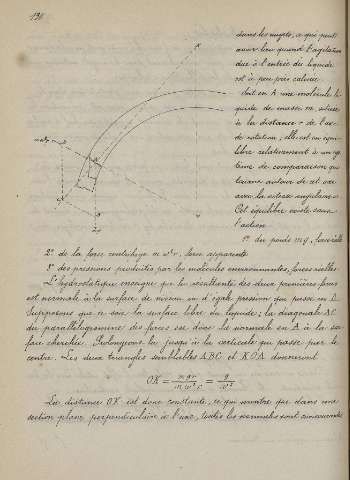 130
dans les augets, ce qui peut
avoir lieu quand l'agitation
due à l'entrée du liquide
est à peu près calmée.
Soit en A une molécule li-
quide de masse m située
à la distance r de l'axe
de rotation; elle est en équi-
libre relativement à un sys-
tème de comparaison qui
tourne autour de cet axe
avec la vitesse angulaire ω
Cet équilibre existe sous
l'action
1° du poids mg, force réelle
2° de la force centrifuge m ω² r, force apparente
3° des pressions produites par les molécules environnantes, forces réelles.
L'hydrostatique enseigne que la résultante des deux premières forces
est normale à la surface de niveau ou d'égale pression qui passe en A.
Supposons que ce soit la surface libre du liquide; la diagonale AC
du parallélogramme des forces est donc la normale en A à la sur-
face cherchée. Prolongeons la jusqu'à la verticale qui passe par le
centre. Les deux triangles semblables ABC et KOA donneront
OK = mgr / mω²r = g / ω²
La distance OK est donc constante, ce qui montre que dans une
section plane perpendiculaire à l'axe, toutes les normales sont concourantes